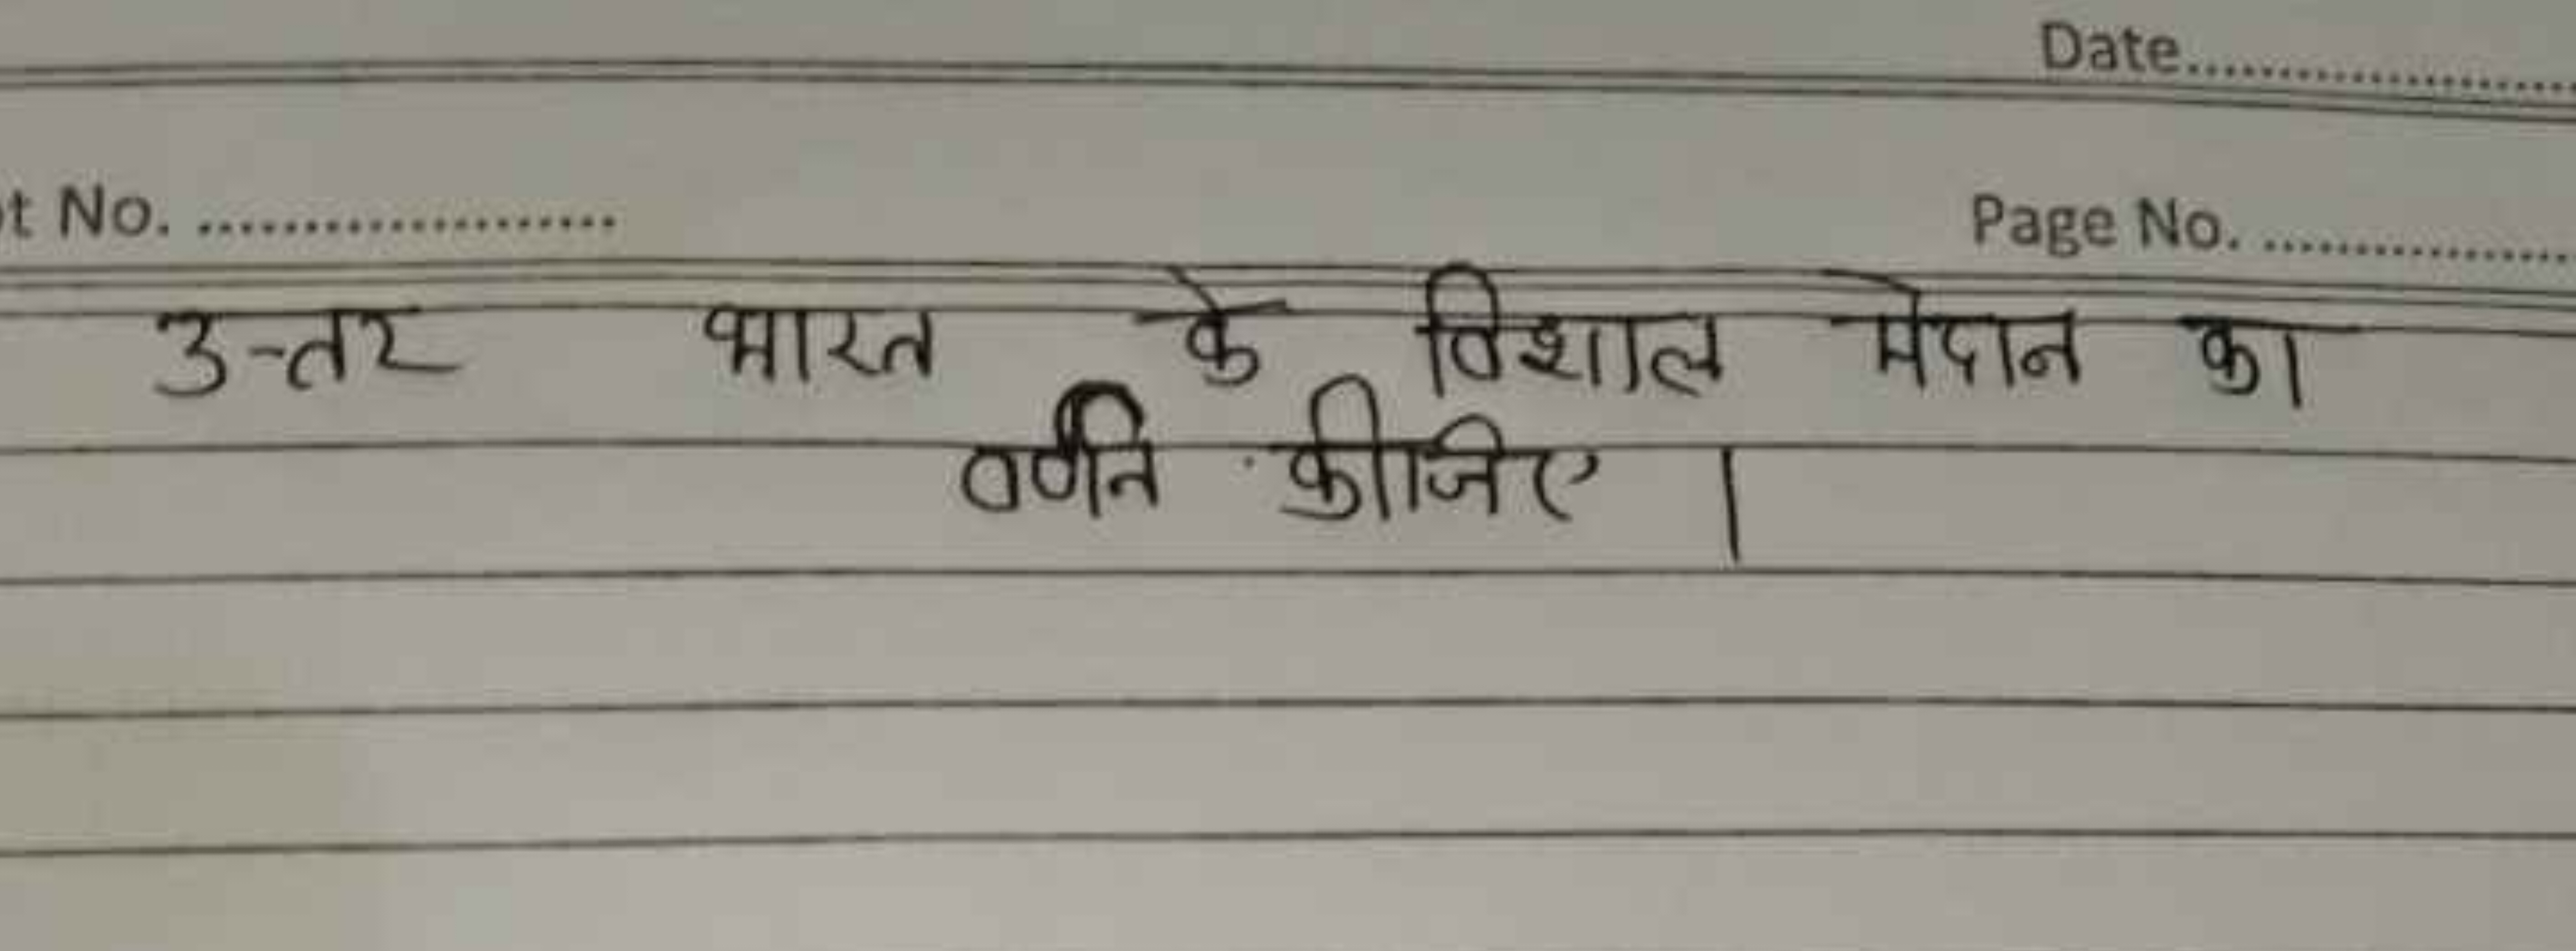 Date....................
t No. ....................
Page No. ................
उत्तर भारत के विशाल मेदान का
वर्णन कीजिए |